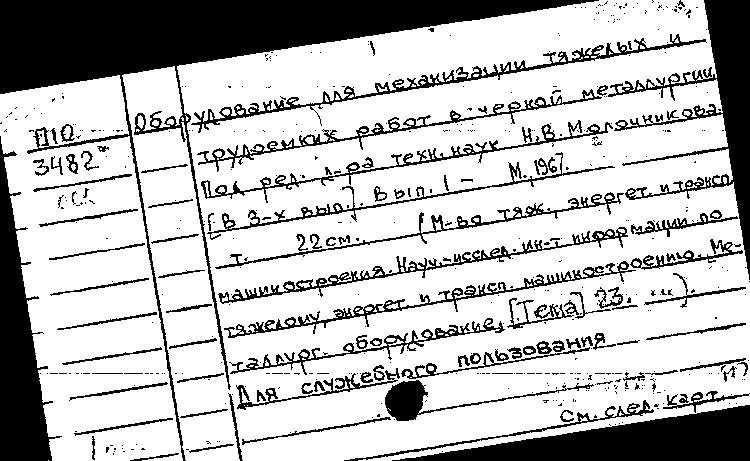 П10
3482*
Оборудование для механизации тяжелых и
трудоемких работ в черной металлургии.
Под ред. д-ра техн. наук Н.В. Молочникова.
[В 3-х вып.]. Вып. 1 – М., 1967.
т. 22 см. (М-во тяж., энергет. и трансп.
машиностроения. Науч.-исслед. ин-т информации по
тяжелому, энергет. и трансп. машиностроению. Ме-
таллург. оборудование, [Тема] 23. ...).
Для служебного пользования
См. след. карт.